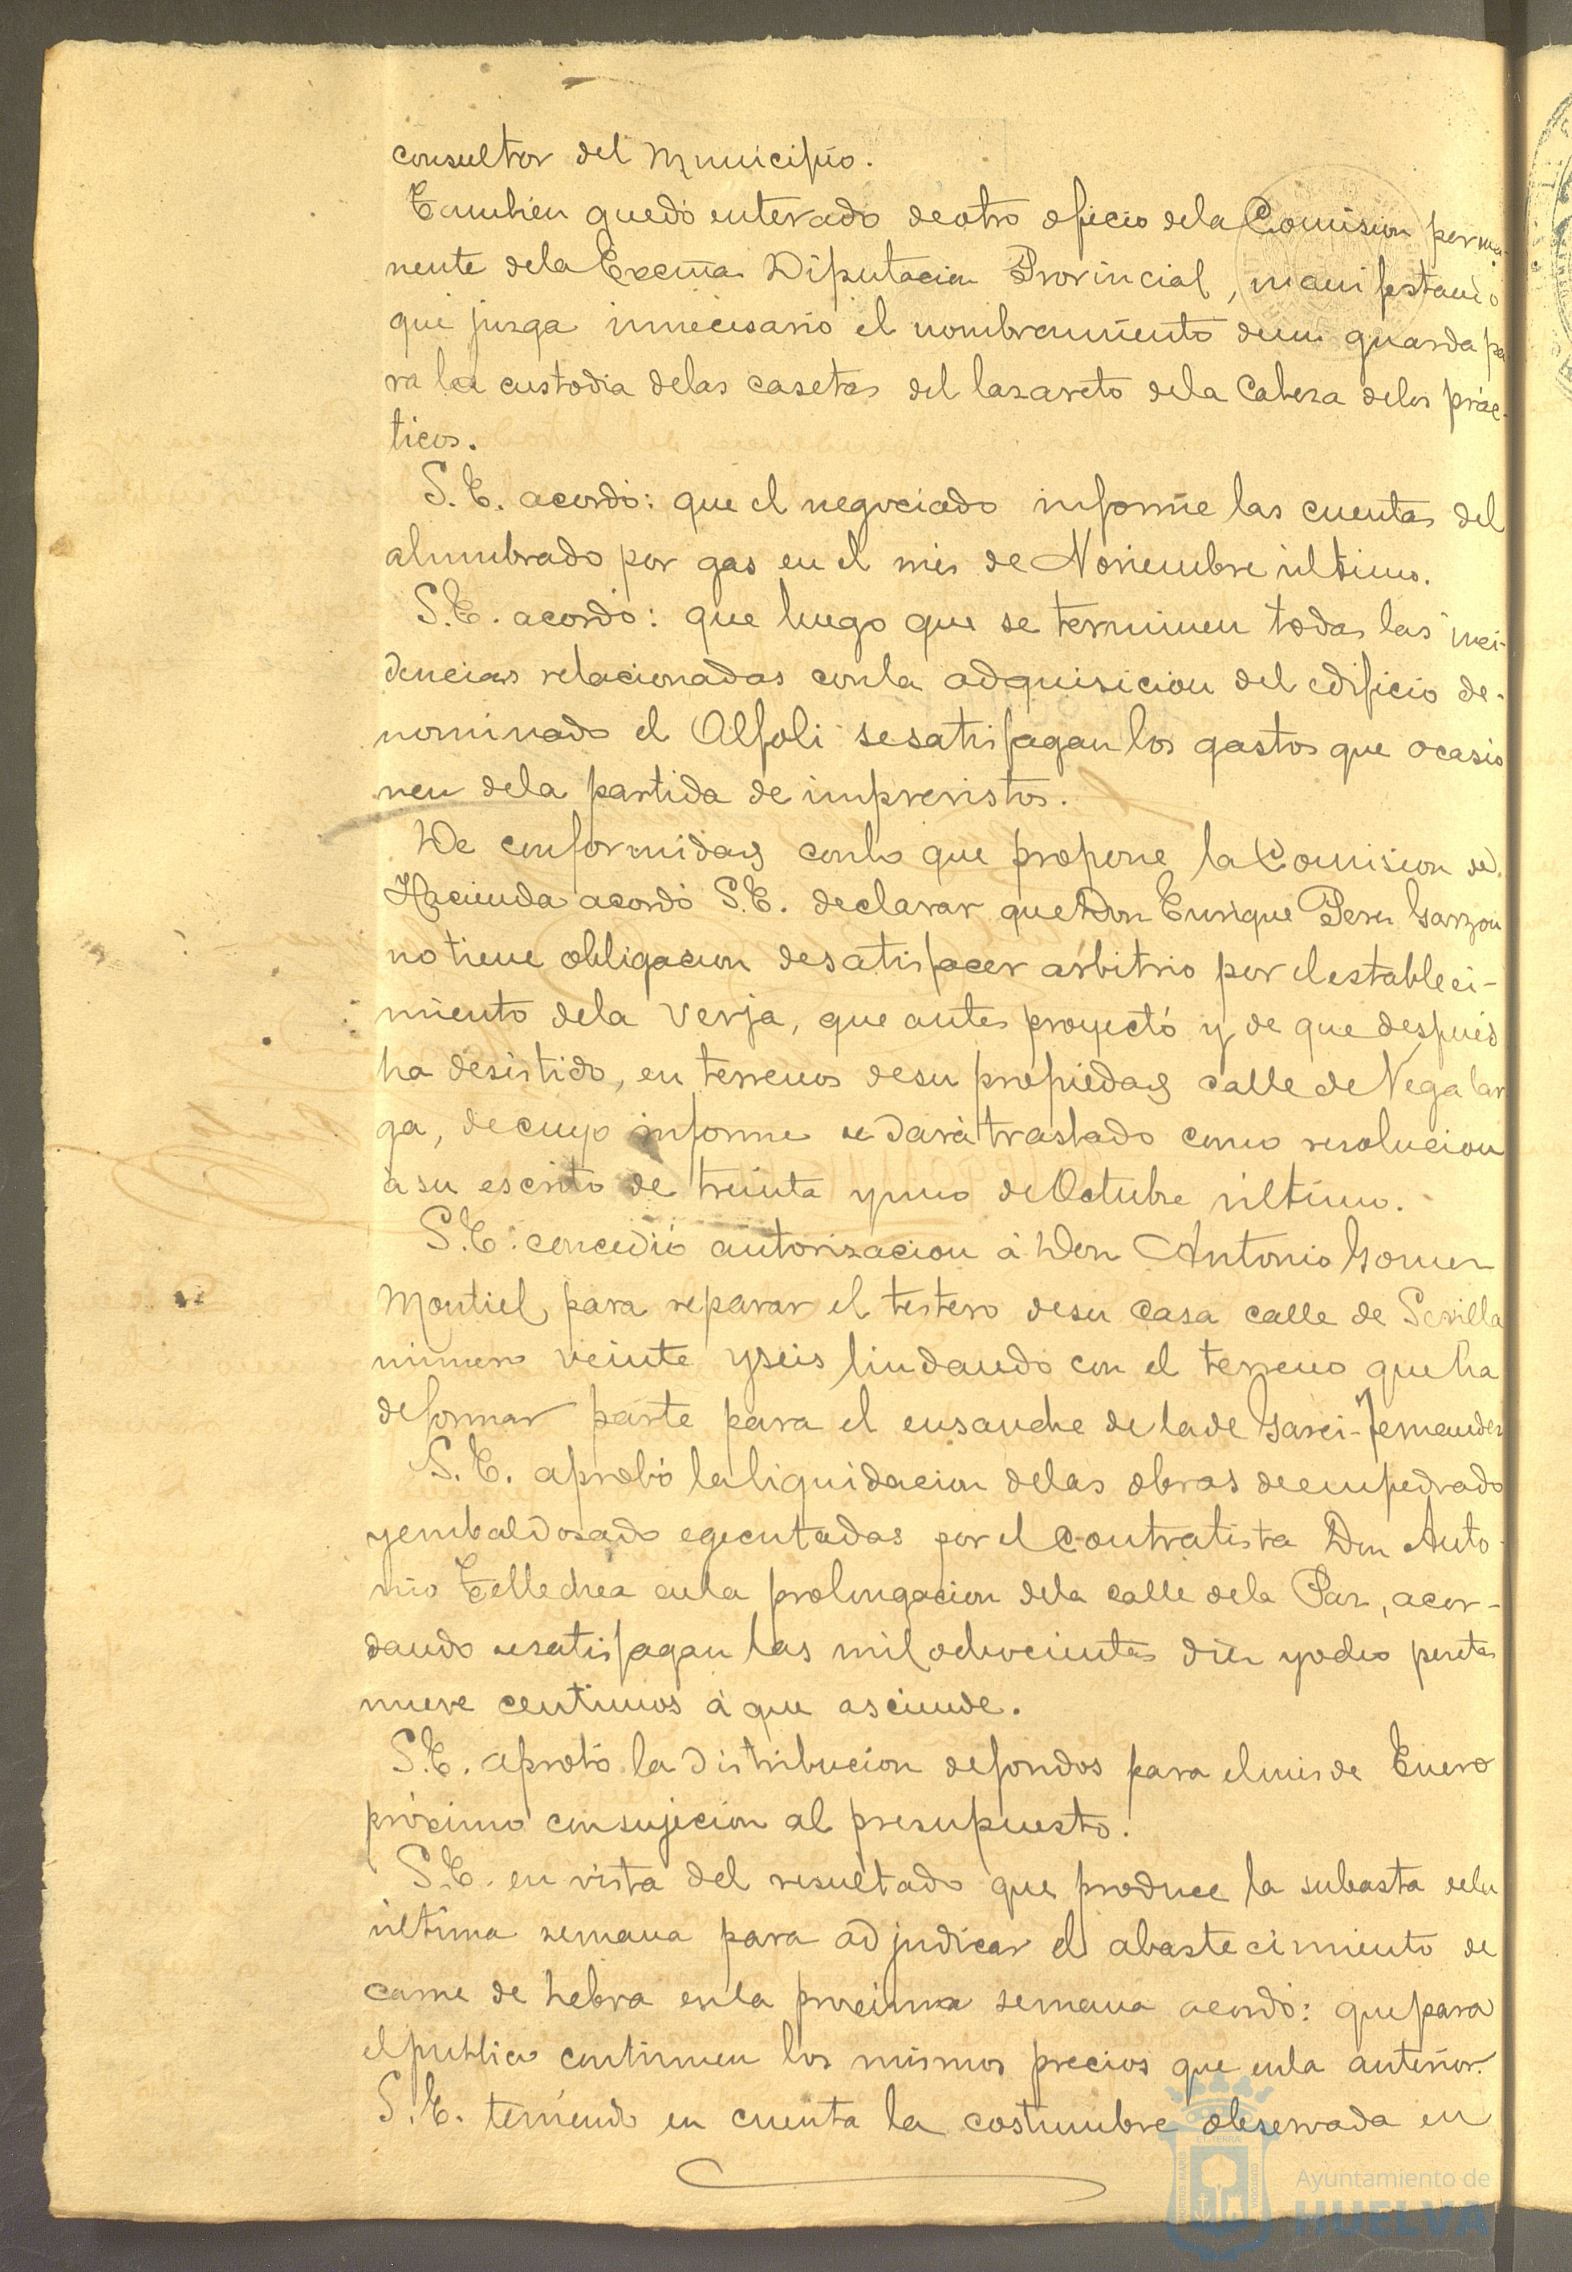 consultor del Municipio.
Tambien quedó enterado de otro oficio de la Comision perma-
nente de la Excma Diputacion Provincial, manifestando
que juzga innecesario el nombramiento de un guarda pa
ra la custodia de las casetas del lazareto de la Cabeza de los prác-
ticos.
S. E. acordó: que el negociado informe las cuentas del
alumbrado por gas en el mes de Noviembre último.
S. E. acordó: que luego que se terminen todas las inci-
dencias relacionadas con la adquisicion del edificio de-
nominado el Alfoli se satisfagan los gastos que ocasio
nen de la partida de imprevistos.
De conformidad con lo que propone la Comision de
Hacienda acordó S. E. declarar que Don Enrique Perez Garzon
no tiene obligacion de satisfacer arbitrio por el estableci-
miento de la verja, que antes proyectó y de que despues
ha desistido, en terrenos de su propiedad calle de Vega lar
ga, de cuyo informe se dará traslado como resolucion
á su escrito de treinta y uno de Octubre último.
S. E. concedió autorizacion á Don Antonio Gomez
Montiel, para reparar el testero de su casa calle de Sevilla
número veinte y seis lindando con el terreno que ha
de formar parte para el ensanche de la de Garci-Fernandez
S. E. aprobó la liquidacion de las obras de empedrado
y embaldosado egecutadas por el contratista Don Anto-
nio Tellechea en la prolongacion de la calle de la Paz, acor-
dando se satisfagan las mil ochocientas diez y ocho pesetas
nueve centimos á que asciende.
S. E. aprobó la distribucion de fondos para el mes de Enero
próximo con sujecion al presupuesto.
S. E. en vista del resultado que produce la subasta de la
última semana para adjudicar el abastecimiento de
carne de hebra en la proxima semana acordó: que para
el publico continuen los mismos precios que en la anterior.
S. E. teniendo en cuenta la costumbre observada en
Ayuntamiento de
HUELVA